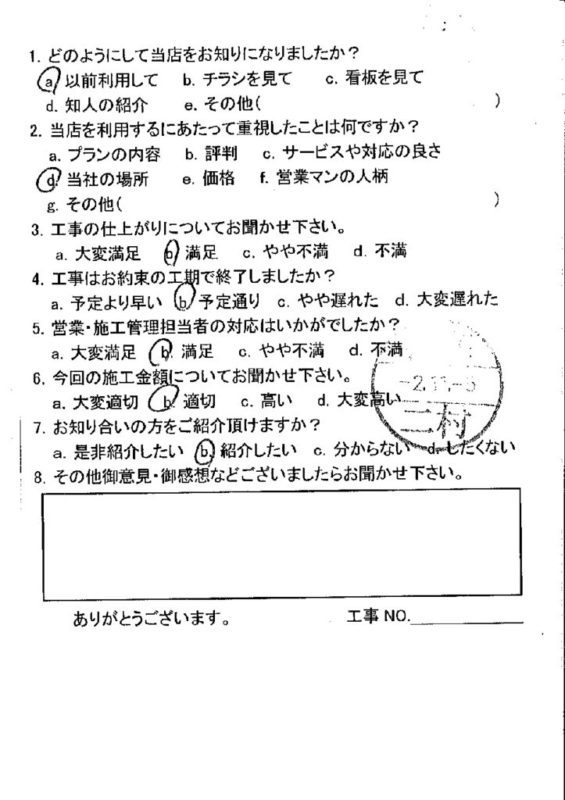 1. どのようにして当店をお知りになりましたか?
a. 以前利用して b. チラシを見て c. 看板を見て
d. 知人の紹介 e. その他( )
2. 当店を利用するにあたって重視したことは何ですか?
a. プランの内容 b. 評判 c. サービスや対応の良さ
d. 当社の場所 e. 価格 f. 営業マンの人柄
g. その他( )
3. 工事の仕上がりについてお聞かせ下さい。
a. 大変満足 b. 満足 c. やや不満 d. 不満
4. 工事はお約束の工期で終了しましたか?
a. 予定より早い b. 予定通り c. やや遅れた d. 大変遅れた
5. 営業・施工管理担当者の対応はいかがでしたか?
a. 大変満足 b. 満足 c. やや不満 d. 不満
6. 今回の施工金額についてお聞かせ下さい。
a. 大変適切 b. 適切 c. 高い d. 大変高い
二村
7. お知り合いの方をご紹介頂けますか?
a. 是非紹介したい b. 紹介したい c. 分からない d. したくない
8. その他御意見・御感想などございましたらお聞かせ下さい。
ありがとうございます。 工事NO.